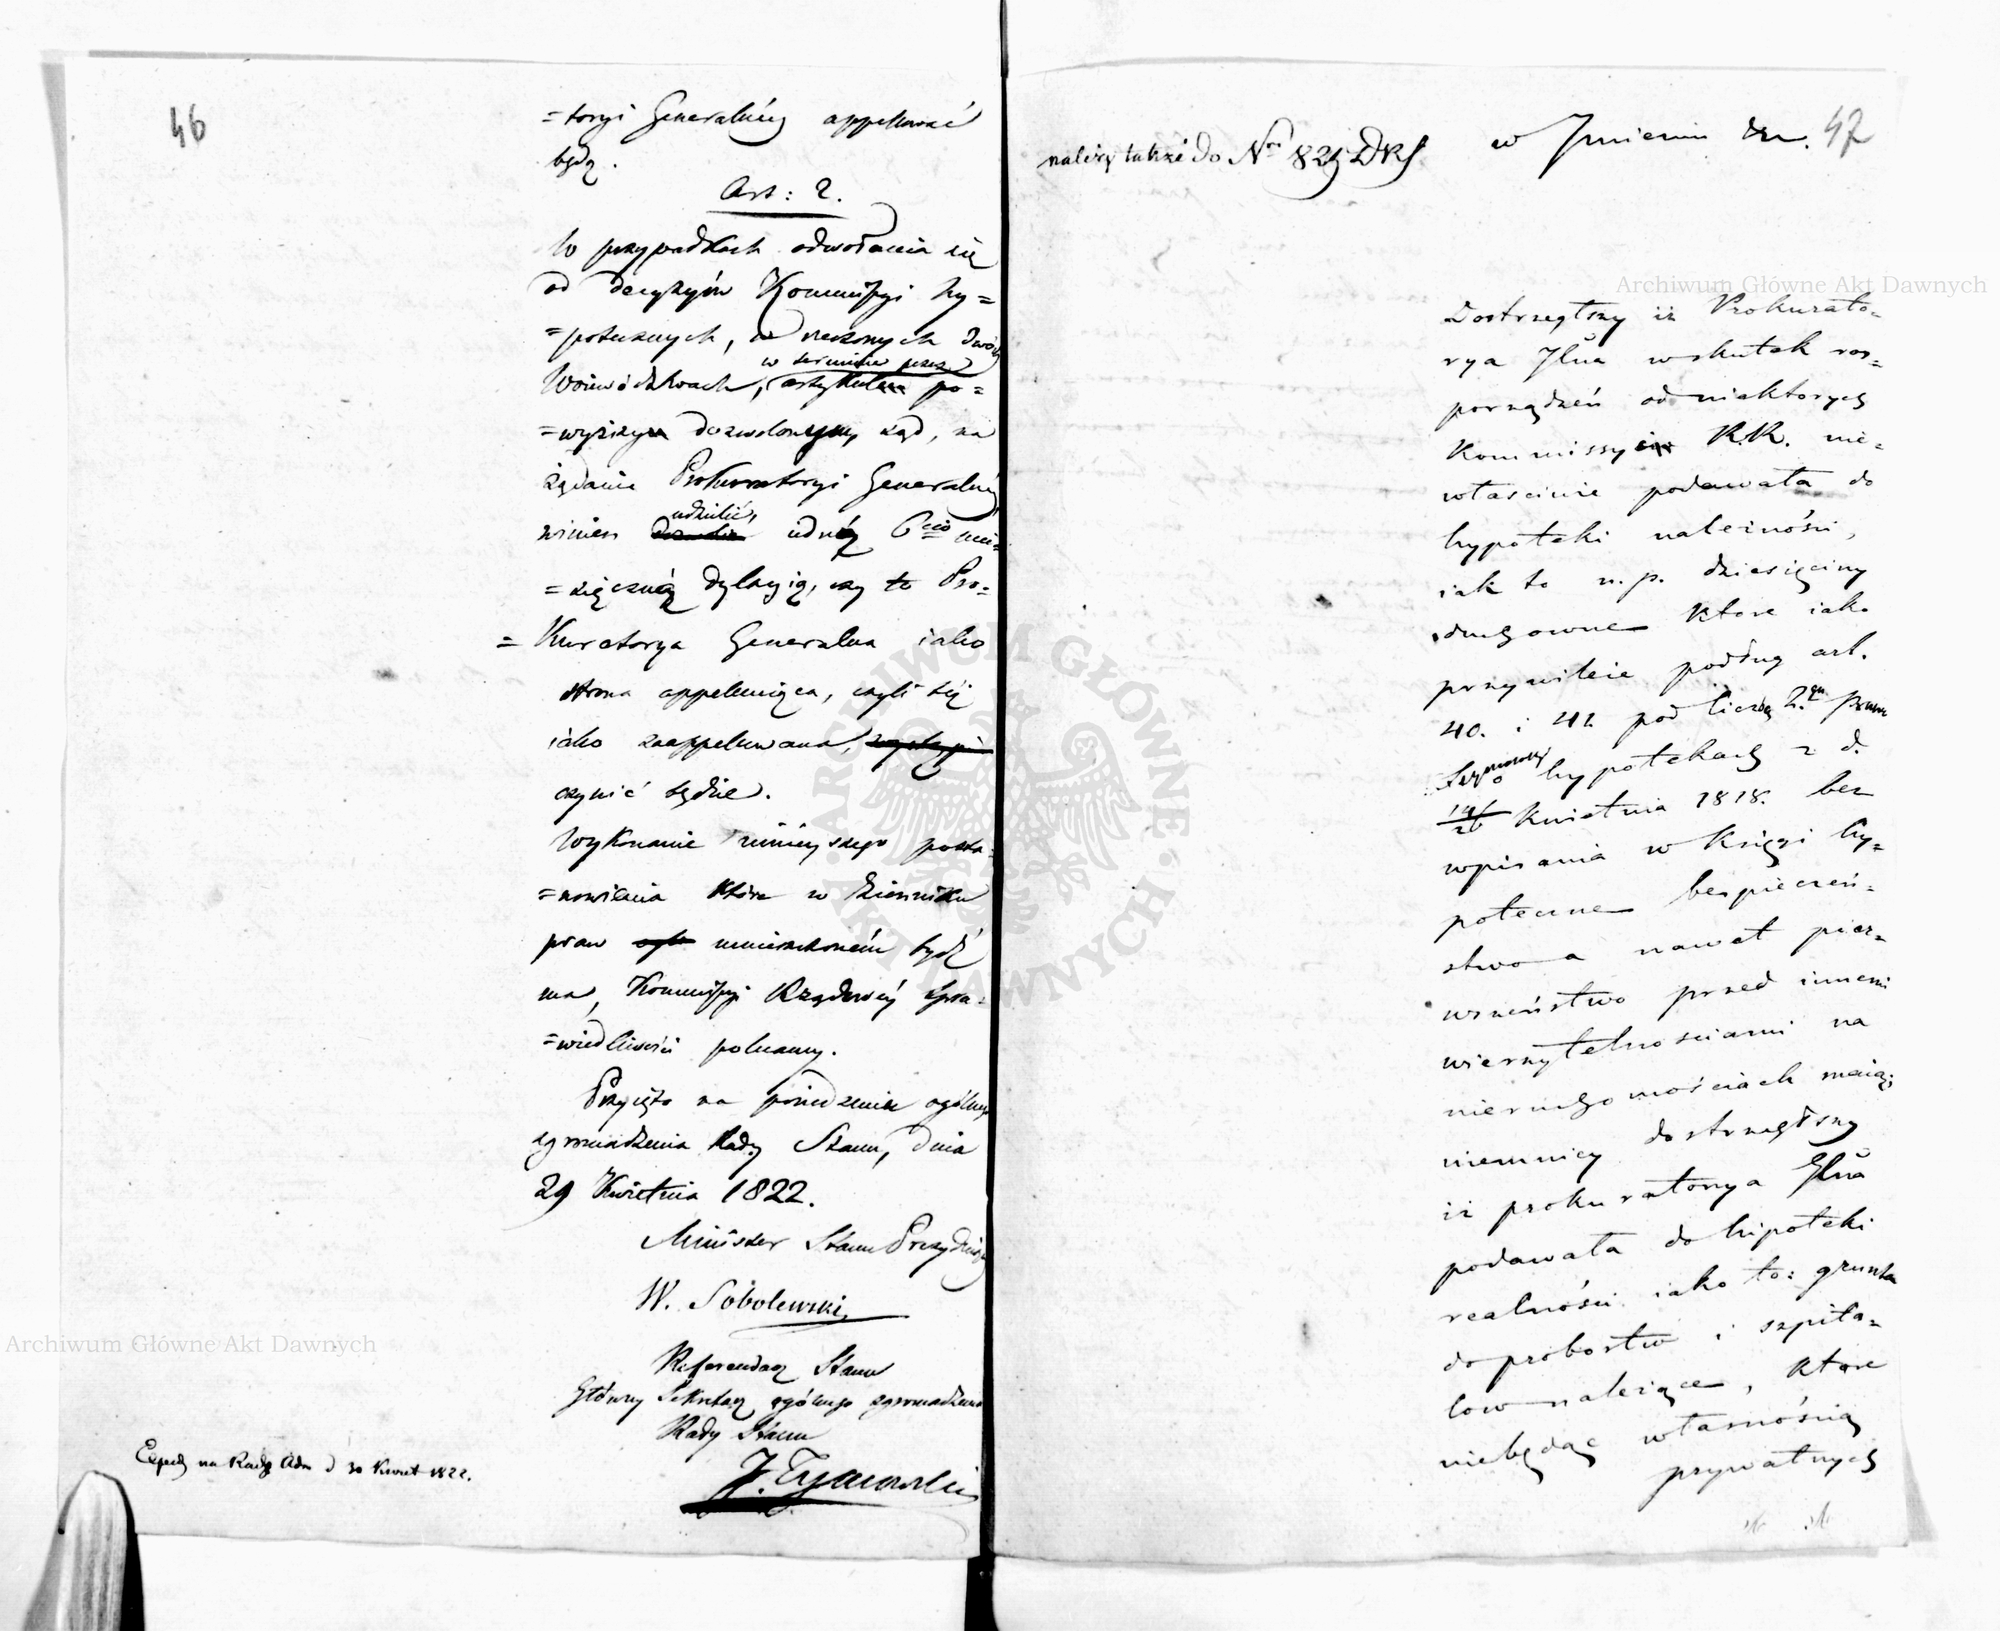 46
=toryi Generalnéy appellować
będą.
Art: 2.
W przypadkach odwołania się
od decyzyów Kommissyi hy=
=potecznych, w rzeczonych dwóch
w terminie przez
Woiewództwach, artykuł po=
=wyższy dozwolonym, sąd, na
żądanie Prokuratoryi Generalnéy
udzielić,
winien iedną 6cio mie=
=sięczną dylacyią, czy to Pro=
=Kuratorya Generalna iako
strona appeluiąca, czyli téż
iako zaappelowana,
czynić będzie.
Wykonanie ninieyszego posta=
=nowienia które w dzienniku
praw umieszczoném bydź
ma, Kommissyi Rządowéy Spra=
=wiedliwości polecamy.
Przyięto na posiedzeniu ogólnego
zgromadzenia Rady Stanu, dnia
29 Kwietnia 1822.
Minister Stanu Prezyduiący
W. Sobolewski
Referendarz Stanu
Główny Sekretarz ogólnego zgromadzenia
Rady Stanu
J. Tymowski
Exped na Radę Adm d 30 Kwiet 1822.
47
w Jmieniu &c.
należy także do Nru 825 DKS
Dostrzegłszy iż Prokurato=
rya Jlna wskutek roz=
porządzeń od niektorych
Kommissyi R.R. nie=
właściwie podawała do
hypoteki należności,
iak to n.p. dziesięciny
duchowne ktore iako
przywileie podług art.
40. i 41. pod liczbą 2.gą Prawa
Seymowego o hypotekach z d.
14/26 Kwietnia 1818. bez
wpisania w Księgi hy=
poteczne bezpieczeń=
stwo a nawet pier=
wszeństwo przed innemi
wierzytelnosciami na
nieruchomościach maią;
niemniey dostrzegłszy
iż prokuratorya Jlna
podawała do hipoteki
realności iako to: grunta
do probostw i szpita=
low należące, ktore
niebędąc własnością
prywatnych
Archiwum Główne Akt Dawnych
Archiwum Główne Akt Dawnych
ARCHIWUM GŁÓWNE AKT DAWNYCH